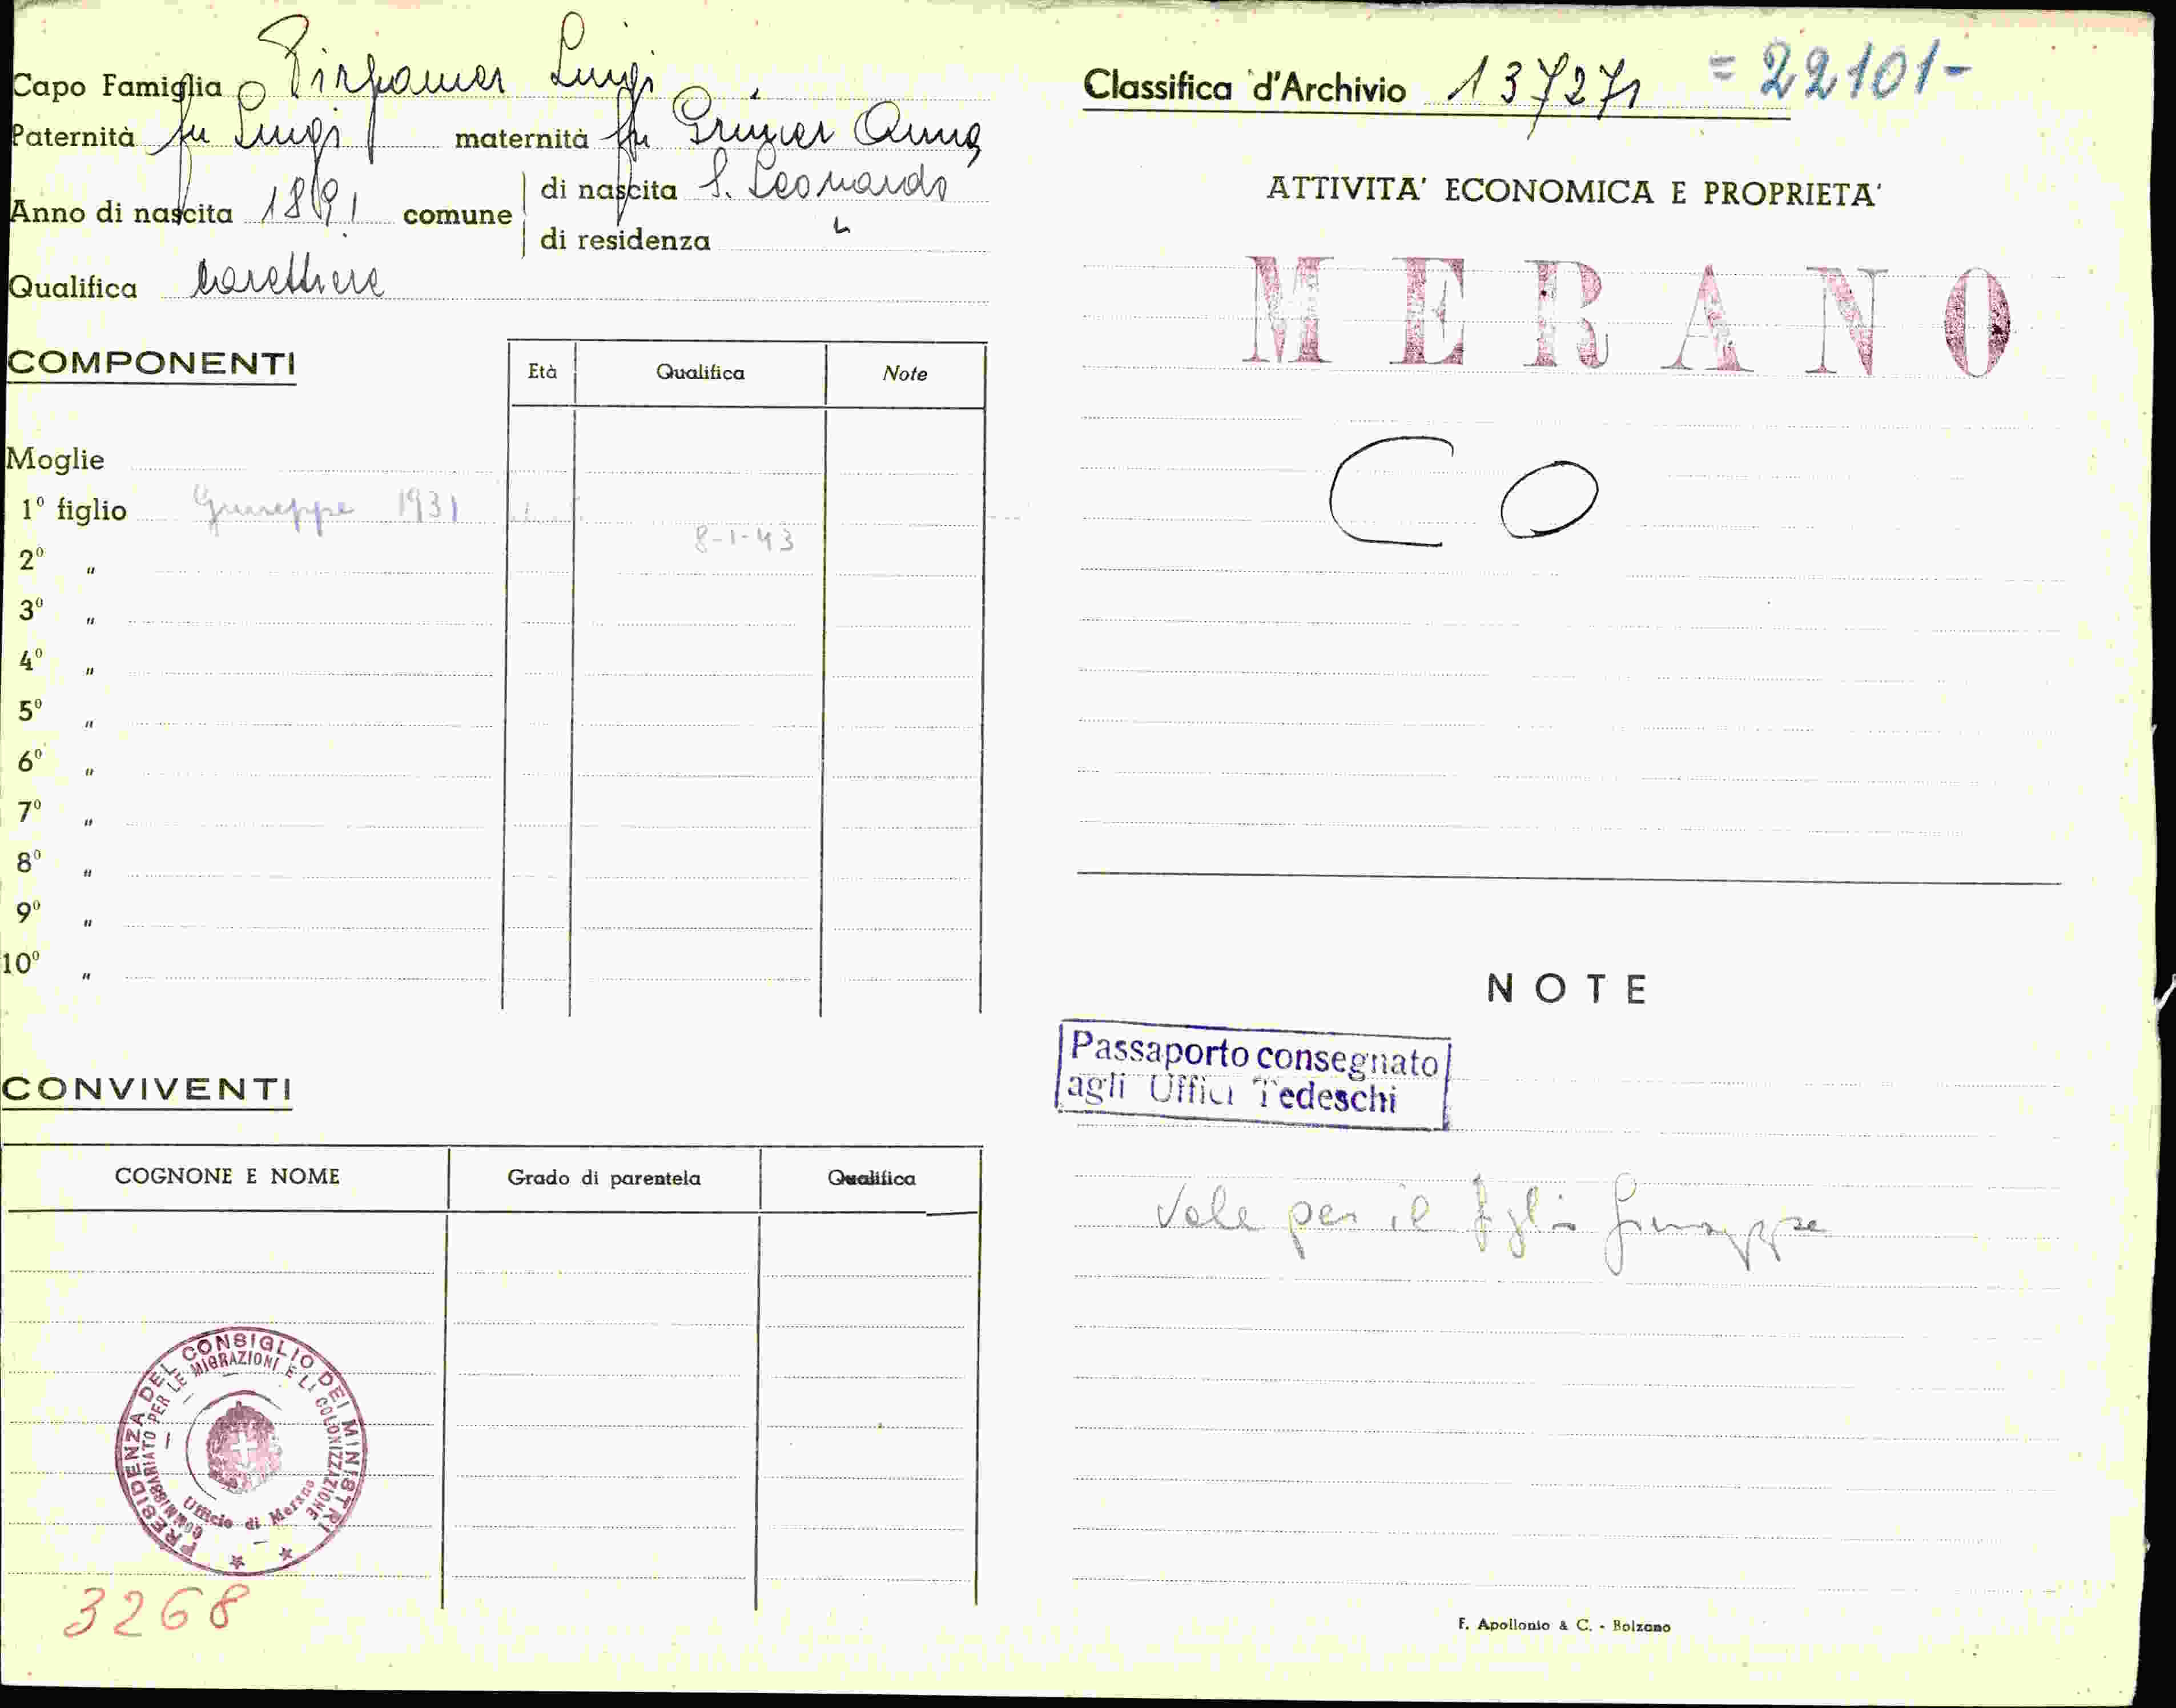 Capo Famiglia Pirpamer Luigi
Paternità fu Luigi maternità fu Grüner Anna
Anno di nascita 1891 comune di nascita S. Leonardo
di residenza "
Qualifica carettiere
COMPONENTI
Età Qualifica Note
Moglie
1º figlio Giuseppe 1931
8-1-43
2º "
3º "
4º "
5º "
6º "
7º "
8º "
9º "
10º "
CONVIVENTI
COGNONE E NOME Grado di parentela Qualifica
PRESIDENZA DEL CONSIGLIO DEI MINISTRI
COMMISSARIATO PER LE MIGRAZIONI E LA COLONIZZAZIONE
Ufficio di Merano
3268
Classifica d'Archivio 137271 = 22101-
ATTIVITA' ECONOMICA E PROPRIETA'
MERANO
CO
NOTE
Passaporto consegnato
agli Uffici Tedeschi
Vale per il figlio Giuseppe
F. Apollonio & C. - Bolzano